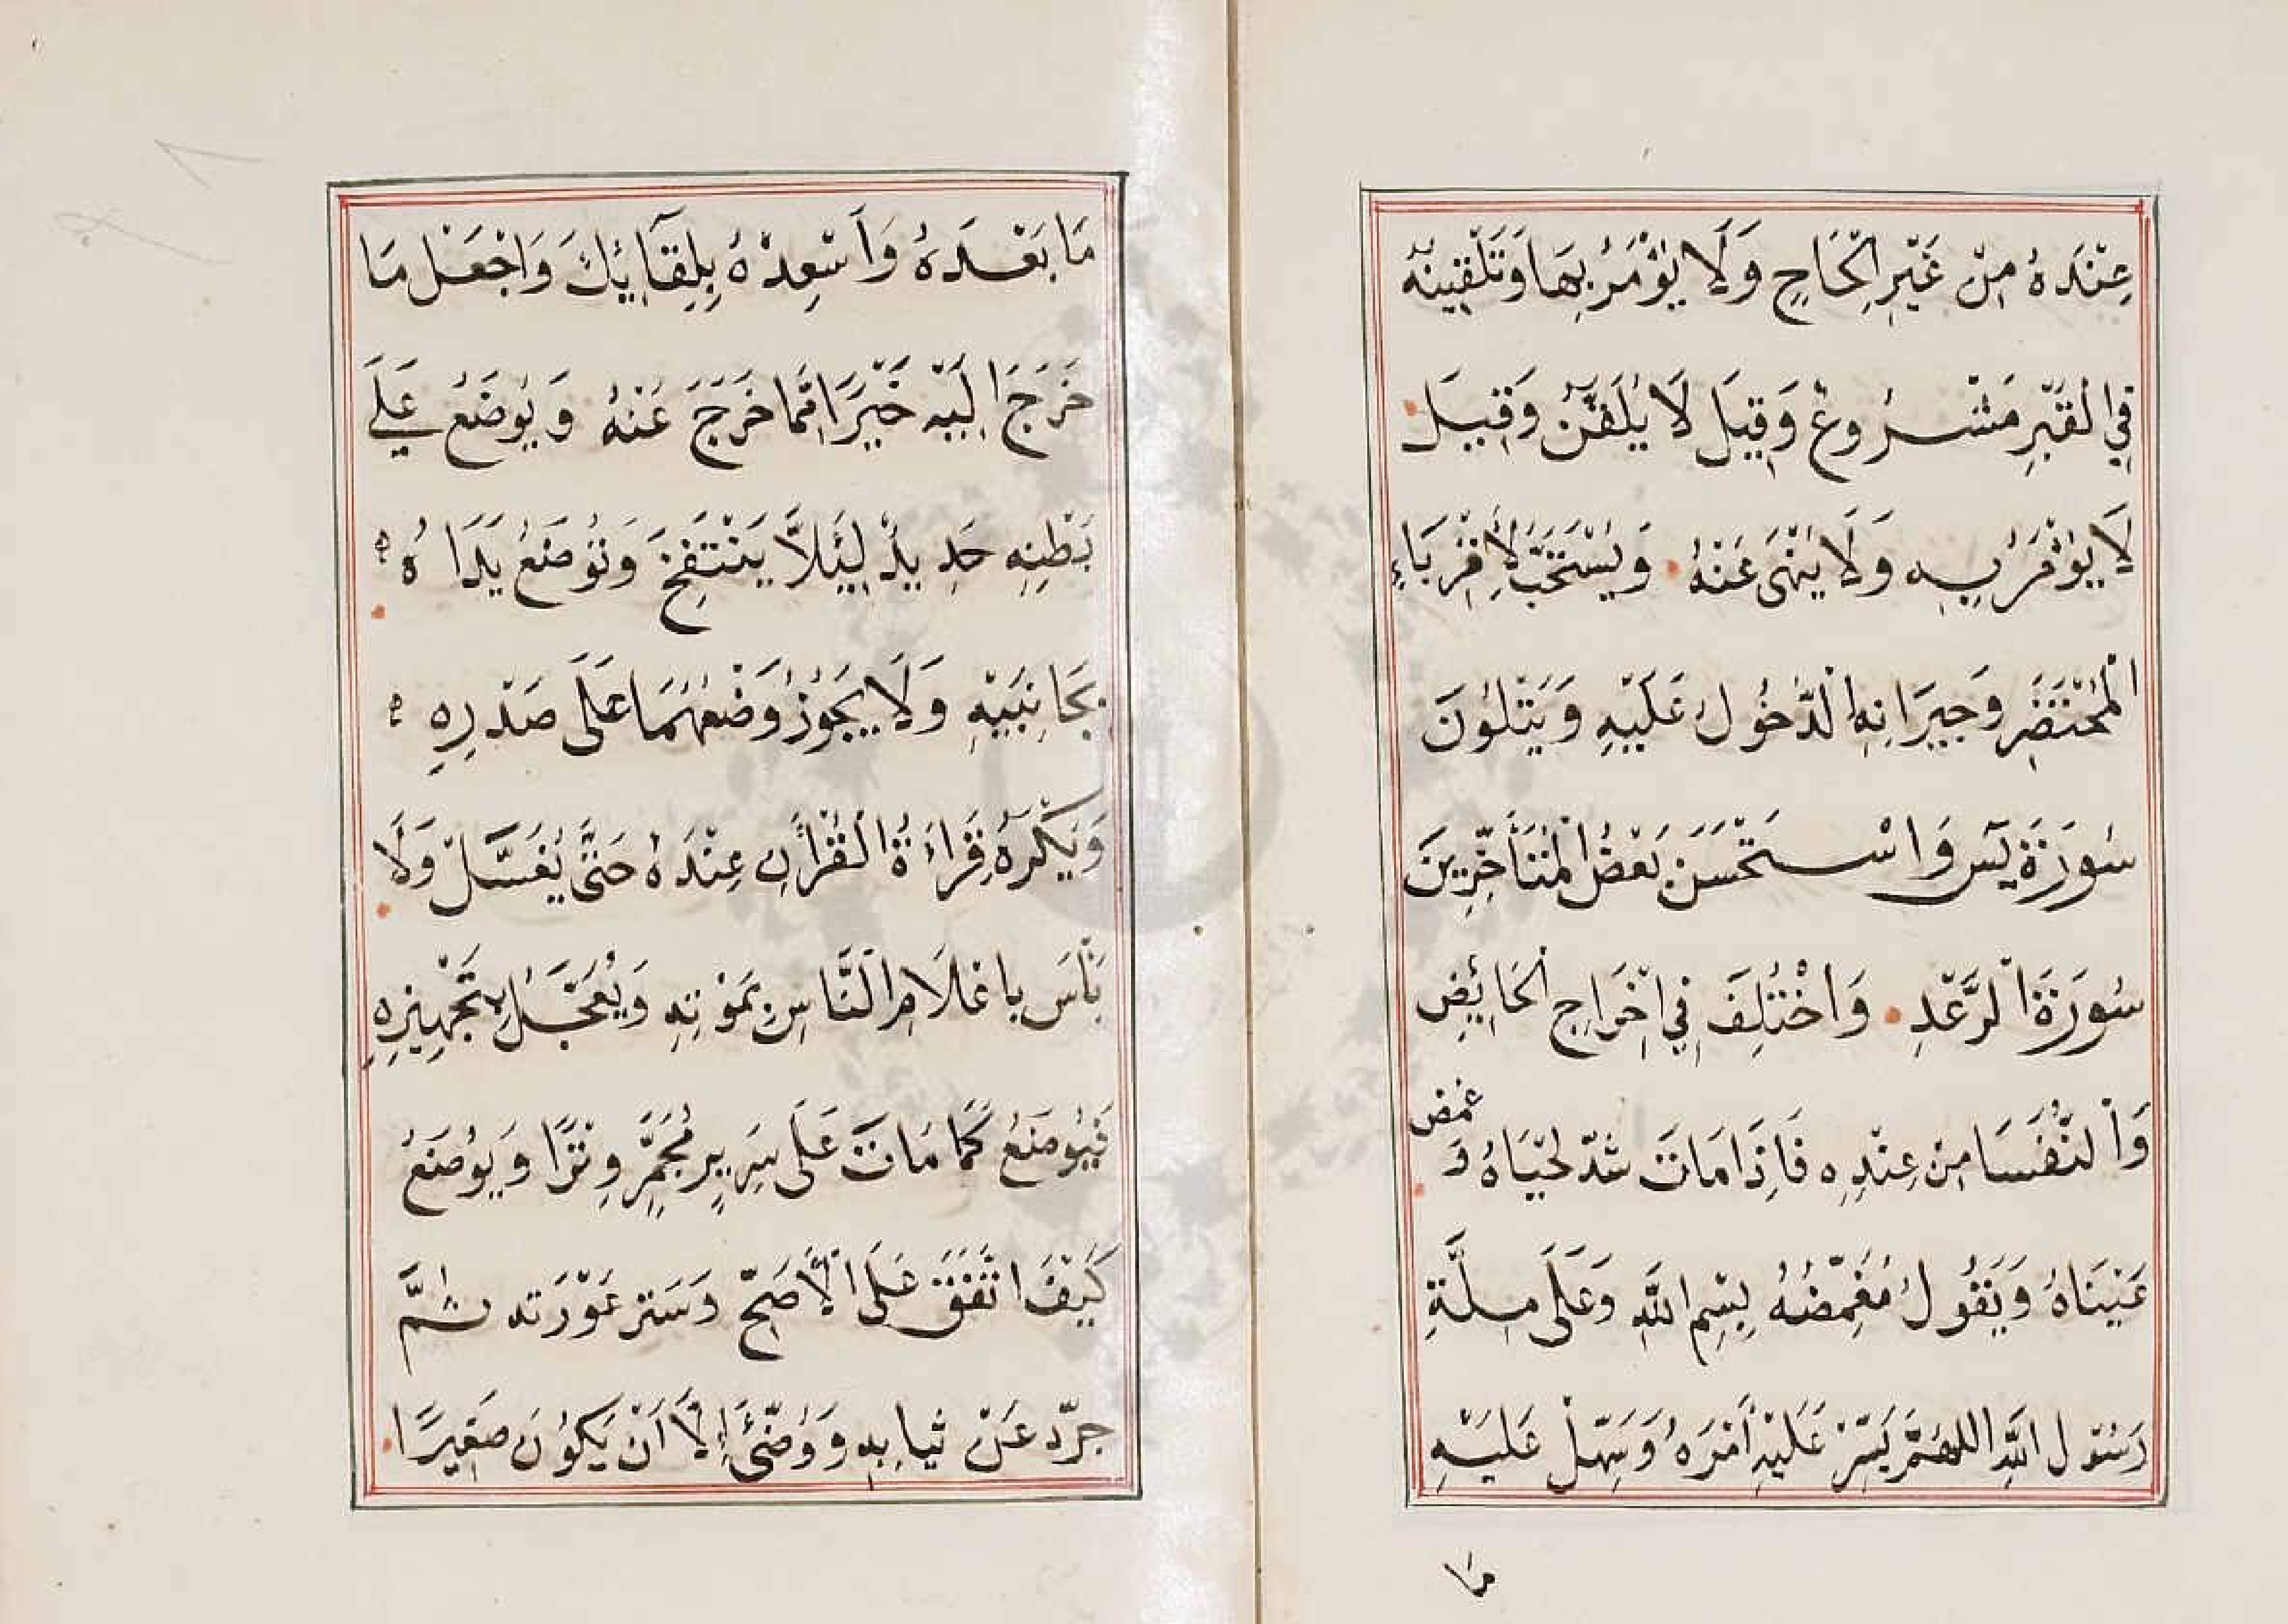 عِنْدَهُ مِنْ غَيْرِ اِلْحَاحٍ وَلَا يُؤْمَرُ بِهَا وَتَلْقِينُهُ
فِي الْقَبْرِ مَشْرُوعٌ وَقِيلَ لَا يُلَقَّنُ وَقِيلَ
لَا يُؤْمَرُ بِهِ وَلَا يُنْهَى عَنْهُ وَيُسْتَحَبُّ لِأَقْرِبَاءِ
الْمُحْتَضَرِ وَجِيرَانِهِ الْدُّخُولُ عَلَيْهِ وَيَتْلُونَ
سُورَةَ يٓس وَاسْتَحْسَنَ بَعْضُ الْمُتَأَخِّرِينَ
سُورَةَ الْرَّعْدِ وَاخْتُلِفَ فِي اِخْرَاجِ الْحَائِضِ
وَالنُّفَسَا مِنْ عِنْدِهِ فَاِذَا مَاتَ شُدَّ لِحْيَاهُ وَ غمض
عَيْنَاهُ وَيَقُولُ مُغَمِّضُهُ بِسْمِ اللَّهِ وَعَلَى مِلَّةِ
رَسُولِ اللَّهِ اللهُمَّ يَسِّرْ عَلَيْهِ أَمْرَهُ وَسَهِّلْ عَلَيْهِ
مَا
مَا بَعْدَهُ وَأَسْعِدْهُ بِلِقَآئِكَ وَاجْعَلْ مَا
خَرَجَ اِلَيْهِ خَيْرًا مِّمَّا خَرَجَ عَنْهُ وَيُوضَعُ عَلَى
بَطْنِهِ حَدِيدٌ لِئَلَّا يَنْتَفِخَ وَتُوضَعُ يَدَاهُ
بِجَانِبَيْهِ وَلَا يَجُوزُ وَضْعُهُمَا عَلَى صَدْرِهِ
وَيُكْرَهُ قِرَاءَةُ الْقُرْاٰنِ عِنْدَهُ حَتَّى يُغَسَّلَ وَلَا
بَأْسَ بِاعْلَامِ النَّاسِ بِمَوْتِهِ وَيُعَجَّلُ بِتَجْهِيزِهِ
فَيُوضَعُ كَمَا مَاتَ عَلَى سَرِيرٍ مُجَمَّرٍ وِتْرًا وَيُوضَعُ
كَيْفَ اتَّفَقَ عَلَى الْأَصَحِّ وَسَتر عَوْرَته ثُمَّ
جرّد عَنْ ثِيابِهِ وَوُضِّئَ إِلَّا أَنْ يَكُونَ صَغِيرًا